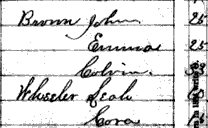 Brown John 25
Emma 25
Colvin
Wheeler Leah
Cora